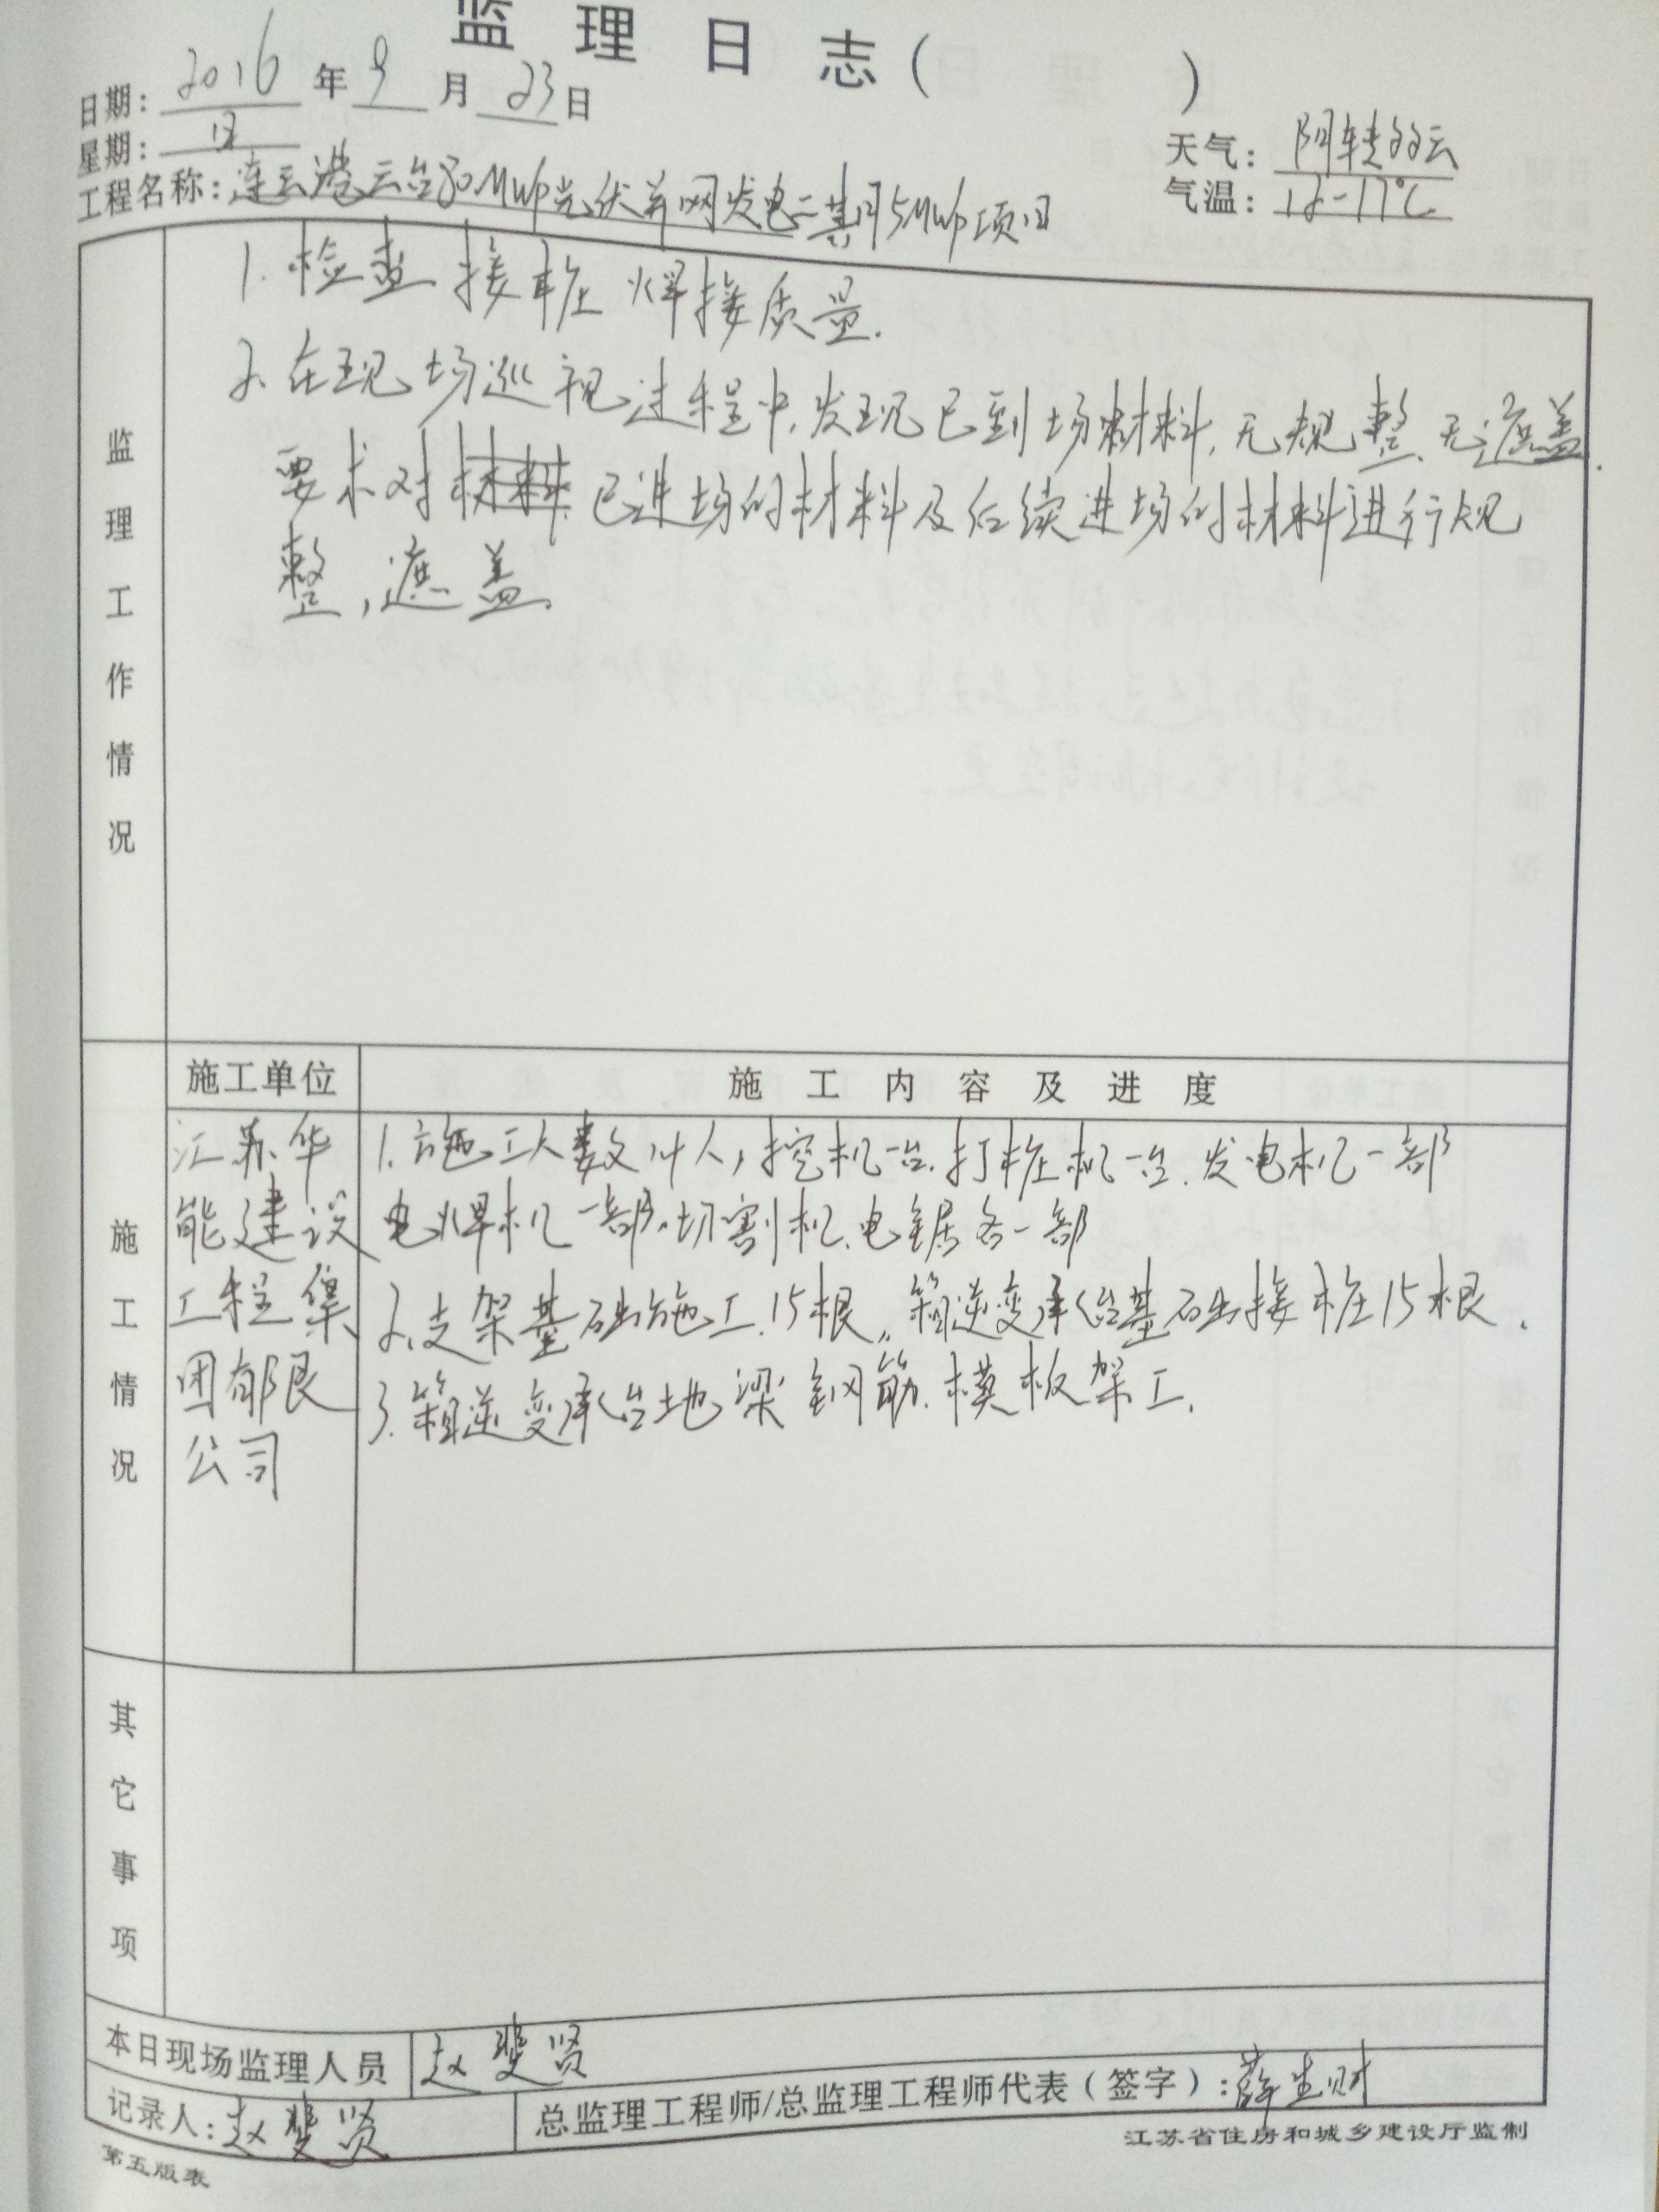 监理日志( )
日期: 2016年9月23日
星期:
天气: 阴转多云
工程名称: 连云港云台30MWp光伏并网发电二期15MWp项目
气温: 12-17℃
监理工作情况
1. 检查接桩焊接质量.
2. 在现场巡视过程中,发现已到场材料,无规整、无遮盖.
要求对已进场的材料及后续进场的材料进行规
整,遮盖.
施工情况
施工单位 施工内容及进度
江苏华
能建设
工程集
团有限
公司
1. 施工人数14人,挖机一台.打桩机一台.发电机一部
电焊机一部.切割机.电锯各一部
2. 支架基础施工15根,箱逆变承台基础接桩15根.
3. 箱逆变承台地梁钢筋.模板架工.
其它事项
本日现场监理人员 赵斐贤
记录人: 赵斐贤 总监理工程师/总监理工程师代表(签字): 薛生财
第五版表 江苏省住房和城乡建设厅监制